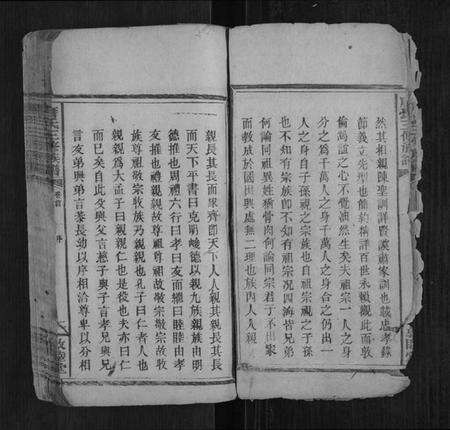 然其相親陳聖訓詳賢謨藏家訓也載孝錄
節義立先型也餘約稱詳百世永賴觀此而敦
倫篤誼之心不覺油然生矣夫祖宗一人之身
分之為千萬人之身千萬人之身合之仍出一
人之身自子孫視之宗族也自祖宗視之子孫
也不知有宗族即不知有祖宗况四海皆兄弟
何論同祖異姓猶骨肉何論同宗君子不出家
而教成於國世與處無二理也族內人人親
親長其長而家齊即天下人人親其親長其長
而天下平書曰克明峻德以親九族親族由明
德推也周禮六行曰孝曰友而繼曰睦睦由孝
友推也禮親親故尊祖尊祖故敬宗敬宗故收
族尊祖敬宗收族乃親親也孔子曰仁者人也
親親為大孟子曰親親仁也是倓也夫亦曰仁
而已矣自此父與父言慈子與子言孝兄與兄
言友弟與弟言恭長幼以序相洽尊卑以分相